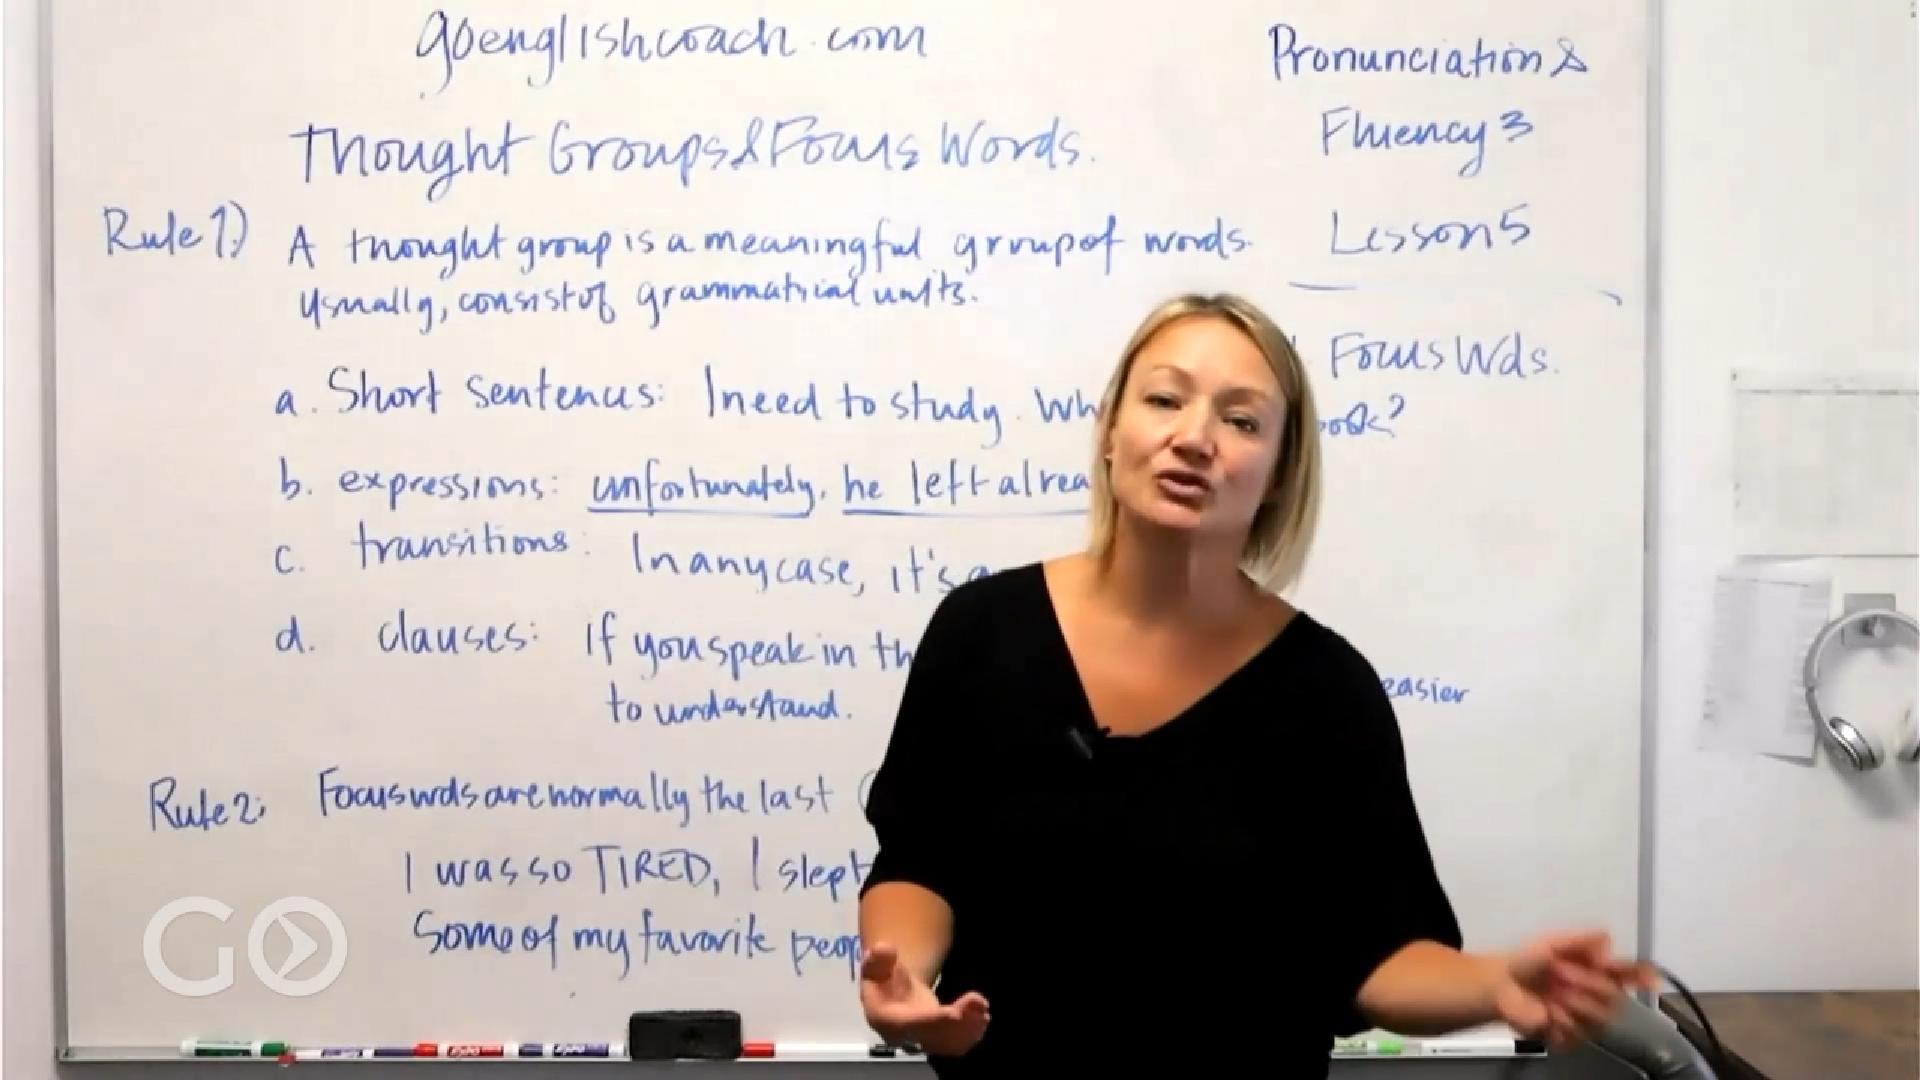 goenglishcoach.com
Pronunciation &
Fluency 3
Lesson 5
Thought Groups & Focus Words.
Rule 1) A thought group is a meaningful group of words.
Usually, consist of grammatical units.
Focus Wds.
a. Short sentences: I need to study. Wh
book?
b. expressions: unfortunately, he left alrea
c. transitions: In any case, it's
d. clauses: if you speak in th
easier
to understand.
Rule 2: Focus wds are normally the last
I was so TIRED, I slept
Some of my favorite peop
GO